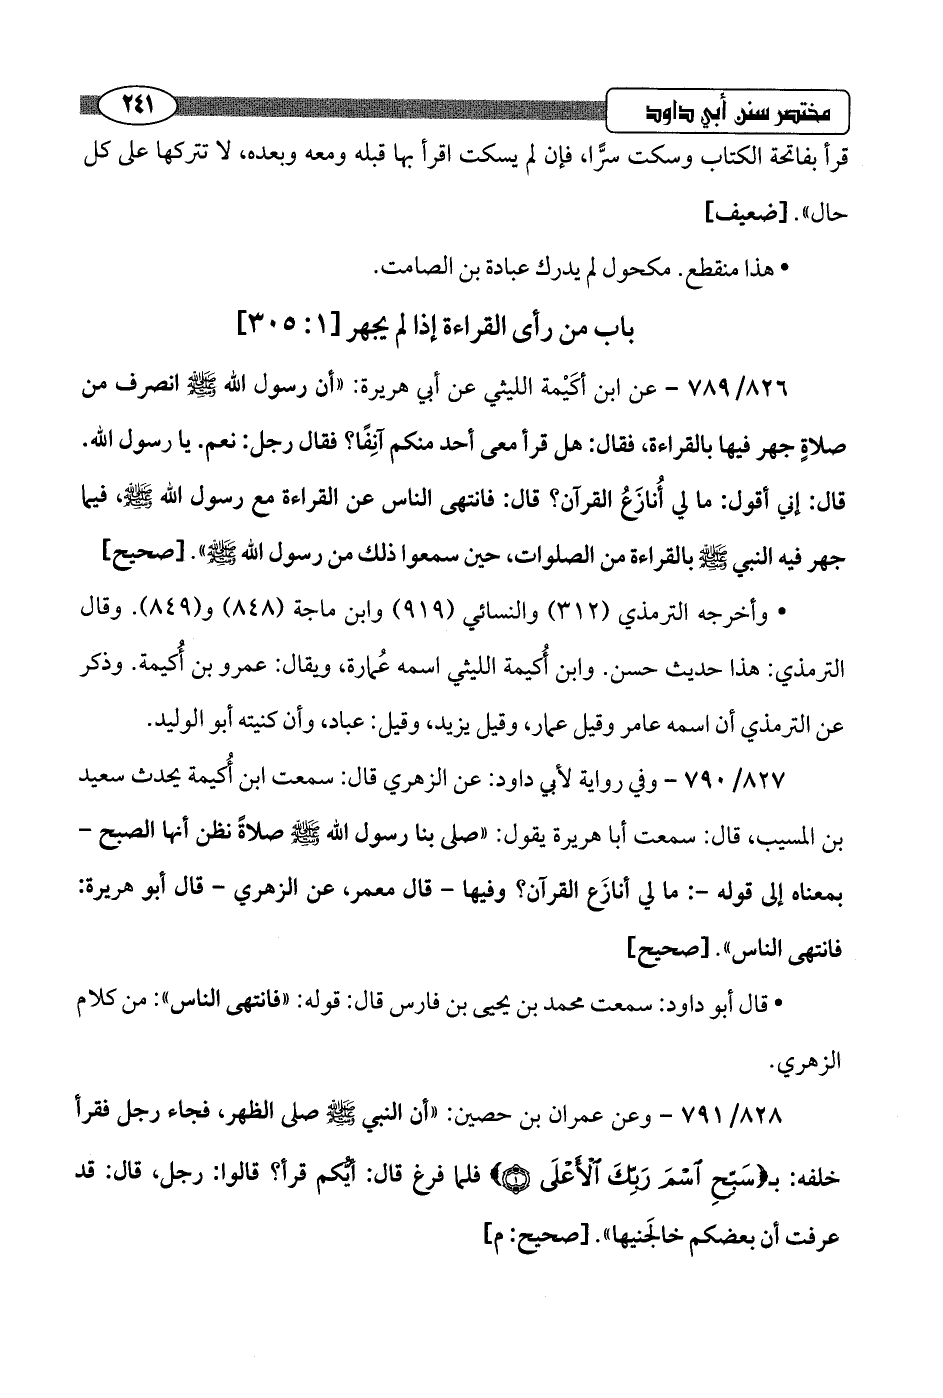 مختصر سنن أبي داود
٢٤١
قرأ بفاتحة الكتاب وسكت سرًّا، فإن لم يسكت اقرأ بها قبله ومعه وبعده، لا تتركها على كل
حال». [ضعيف]
• هذا منقطع. مكحول لم يدرك عبادة بن الصامت.
باب من رأى القراءة إذا لم يجهر [١: ٣٠٥]
٧٨٩/٨٢٦ - عن ابن أكَيْمة الليثي عن أبي هريرة: «أن رسول الله ﷺ انصرف من
صلاةٍ جهر فيها بالقراءة، فقال: هل قرأ معى أحد منكم آنِفًا؟ فقال رجل: نعم. يا رسول الله.
قال: إني أقول: ما لي أُنازَعُ القرآن؟ قال: فانتهى الناس عن القراءة مع رسول الله ﷺ، فيما
جهر فيه النبي ﷺ بالقراءة من الصلوات، حين سمعوا ذلك من رسول الله ﷺ». [صحيح]
• وأخرجه الترمذي (٣١٢) والنسائي (٩١٩) وابن ماجة (٨٤٨) و(٨٤٩). وقال
الترمذي: هذا حديث حسن. وابن أُكيمة الليثي اسمه عُمارة، ويقال: عمرو بن أُكيمة. وذكر
عن الترمذي أن اسمه عامر وقيل عمار، وقيل يزيد، وقيل: عباد، وأن كنيته أبو الوليد.
٧٩٠/٨٢٧ - وفي رواية لأبي داود: عن الزهري قال: سمعت ابن أُكيمة يحدث سعيد
بن المسيب، قال: سمعت أبا هريرة يقول: «صلى بنا رسول الله ﷺ صلاةً نظن أنها الصبح -
بمعناه إلى قوله -: ما لي أنازَع القرآن؟ وفيها - قال معمر، عن الزهري - قال أبو هريرة:
فانتهى الناس». [صحيح]
• قال أبو داود: سمعت محمد بن يحيى بن فارس قال: قوله: «فانتهى الناس»: من كلام
الزهري.
٧٩١/٨٢٨ - وعن عمران بن حصين: «أن النبي ﷺ صلى الظهر، فجاء رجل فقرأ
خلفه: بـ﴿سَبِّحِ ٱسْمَ رَبِّكَ ٱلْأَعْلَى ۝١﴾ فلما فرغ قال: أيُّكم قرأ؟ قالوا: رجل، قال: قد
عرفت أن بعضكم خالَجَنيها». [صحيح: م]